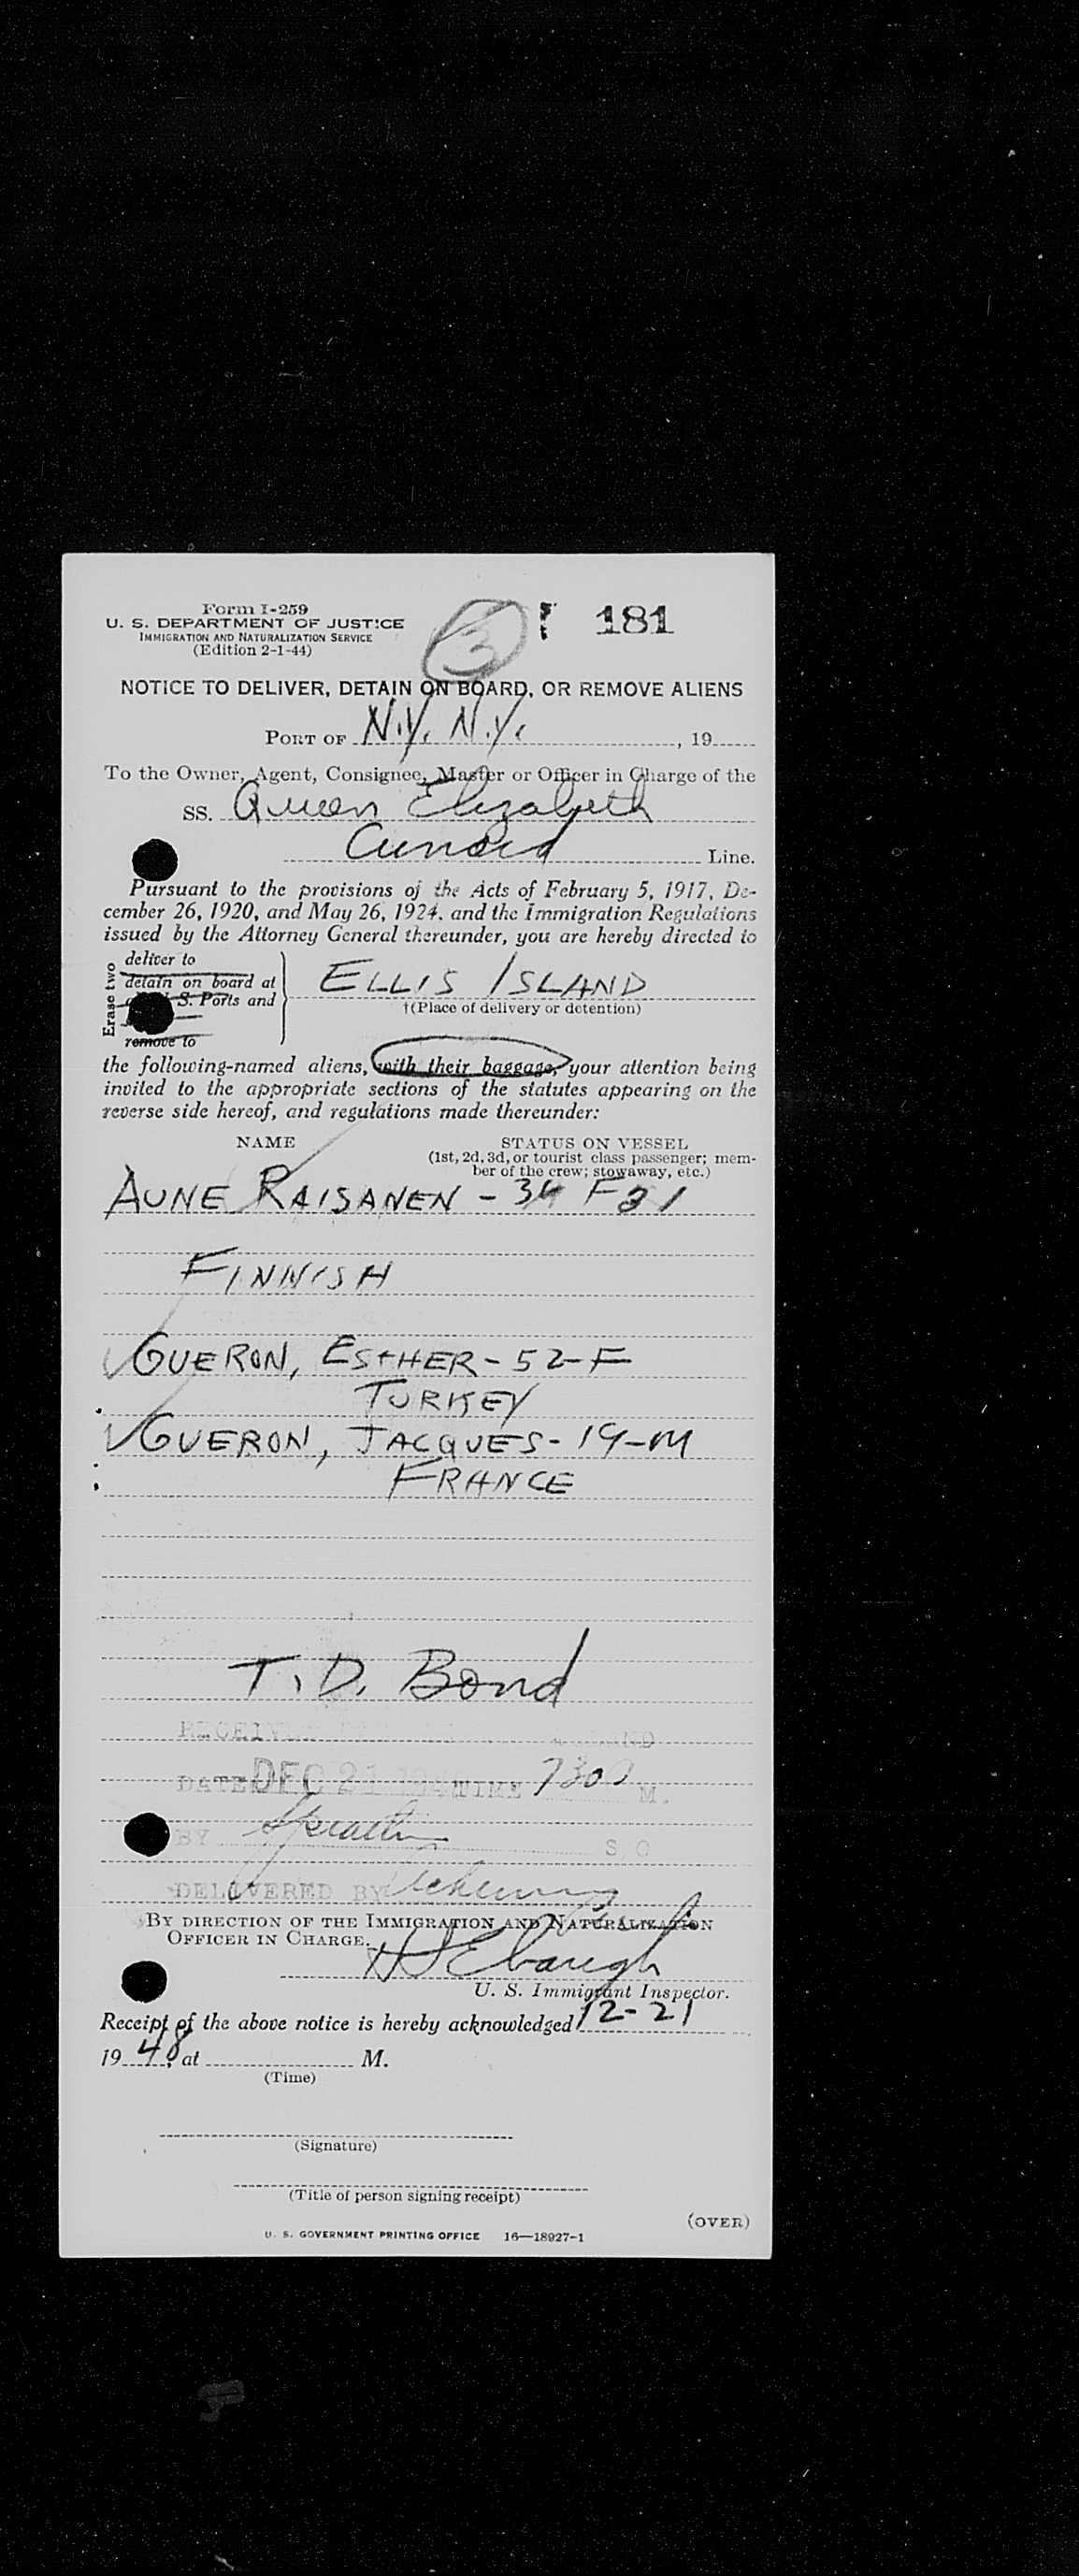 Form I-259
U. S. DEPARTMENT OF JUSTICE
IMMIGRATION AND NATURALIZATION SERVICE
(Edition 2-1-44)
3
181
NOTICE TO DELIVER, DETAIN ON BOARD, OR REMOVE ALIENS
PORT OF N.Y. N.Y. , 19
To the Owner, Agent, Consignee, Master or Officer in Charge of the
SS. Queen Elizabeth
Cunard Line.
Pursuant to the provisions of the Acts of February 5, 1917, De-
cember 26, 1920, and May 26, 1924, and the Immigration Regulations
issued by the Attorney General thereunder, you are hereby directed to
Erase two
deliver to
detain on board at
S. Ports and
remove to
ELLIS ISLAND
†(Place of delivery or detention)
the following-named aliens, with their baggage, your attention being
invited to the appropriate sections of the statutes appearing on the
reverse side hereof, and regulations made thereunder:
NAME STATUS ON VESSEL
(1st, 2d, 3d, or tourist class passenger; mem-
ber of the crew; stowaway, etc.)
AUNE RAISANEN - 34 F 31
FINNISH
GUERON, ESTHER - 52 - F
TURKEY
GUERON, JACQUES - 19 - M
FRANCE
T. D. Bond
DATE DEC 21 TIME 730 M.
BY S O
DELIVERED BY
BY DIRECTION OF THE IMMIGRATION AND NATURALIZATION
OFFICER IN CHARGE.
H S Ebaugh
U. S. Immigrant Inspector.
Receipt of the above notice is hereby acknowledged 12-21
19 48, at M.
(Time)
(Signature)
(Title of person signing receipt)
(OVER)
U. S. GOVERNMENT PRINTING OFFICE 16—18927-1